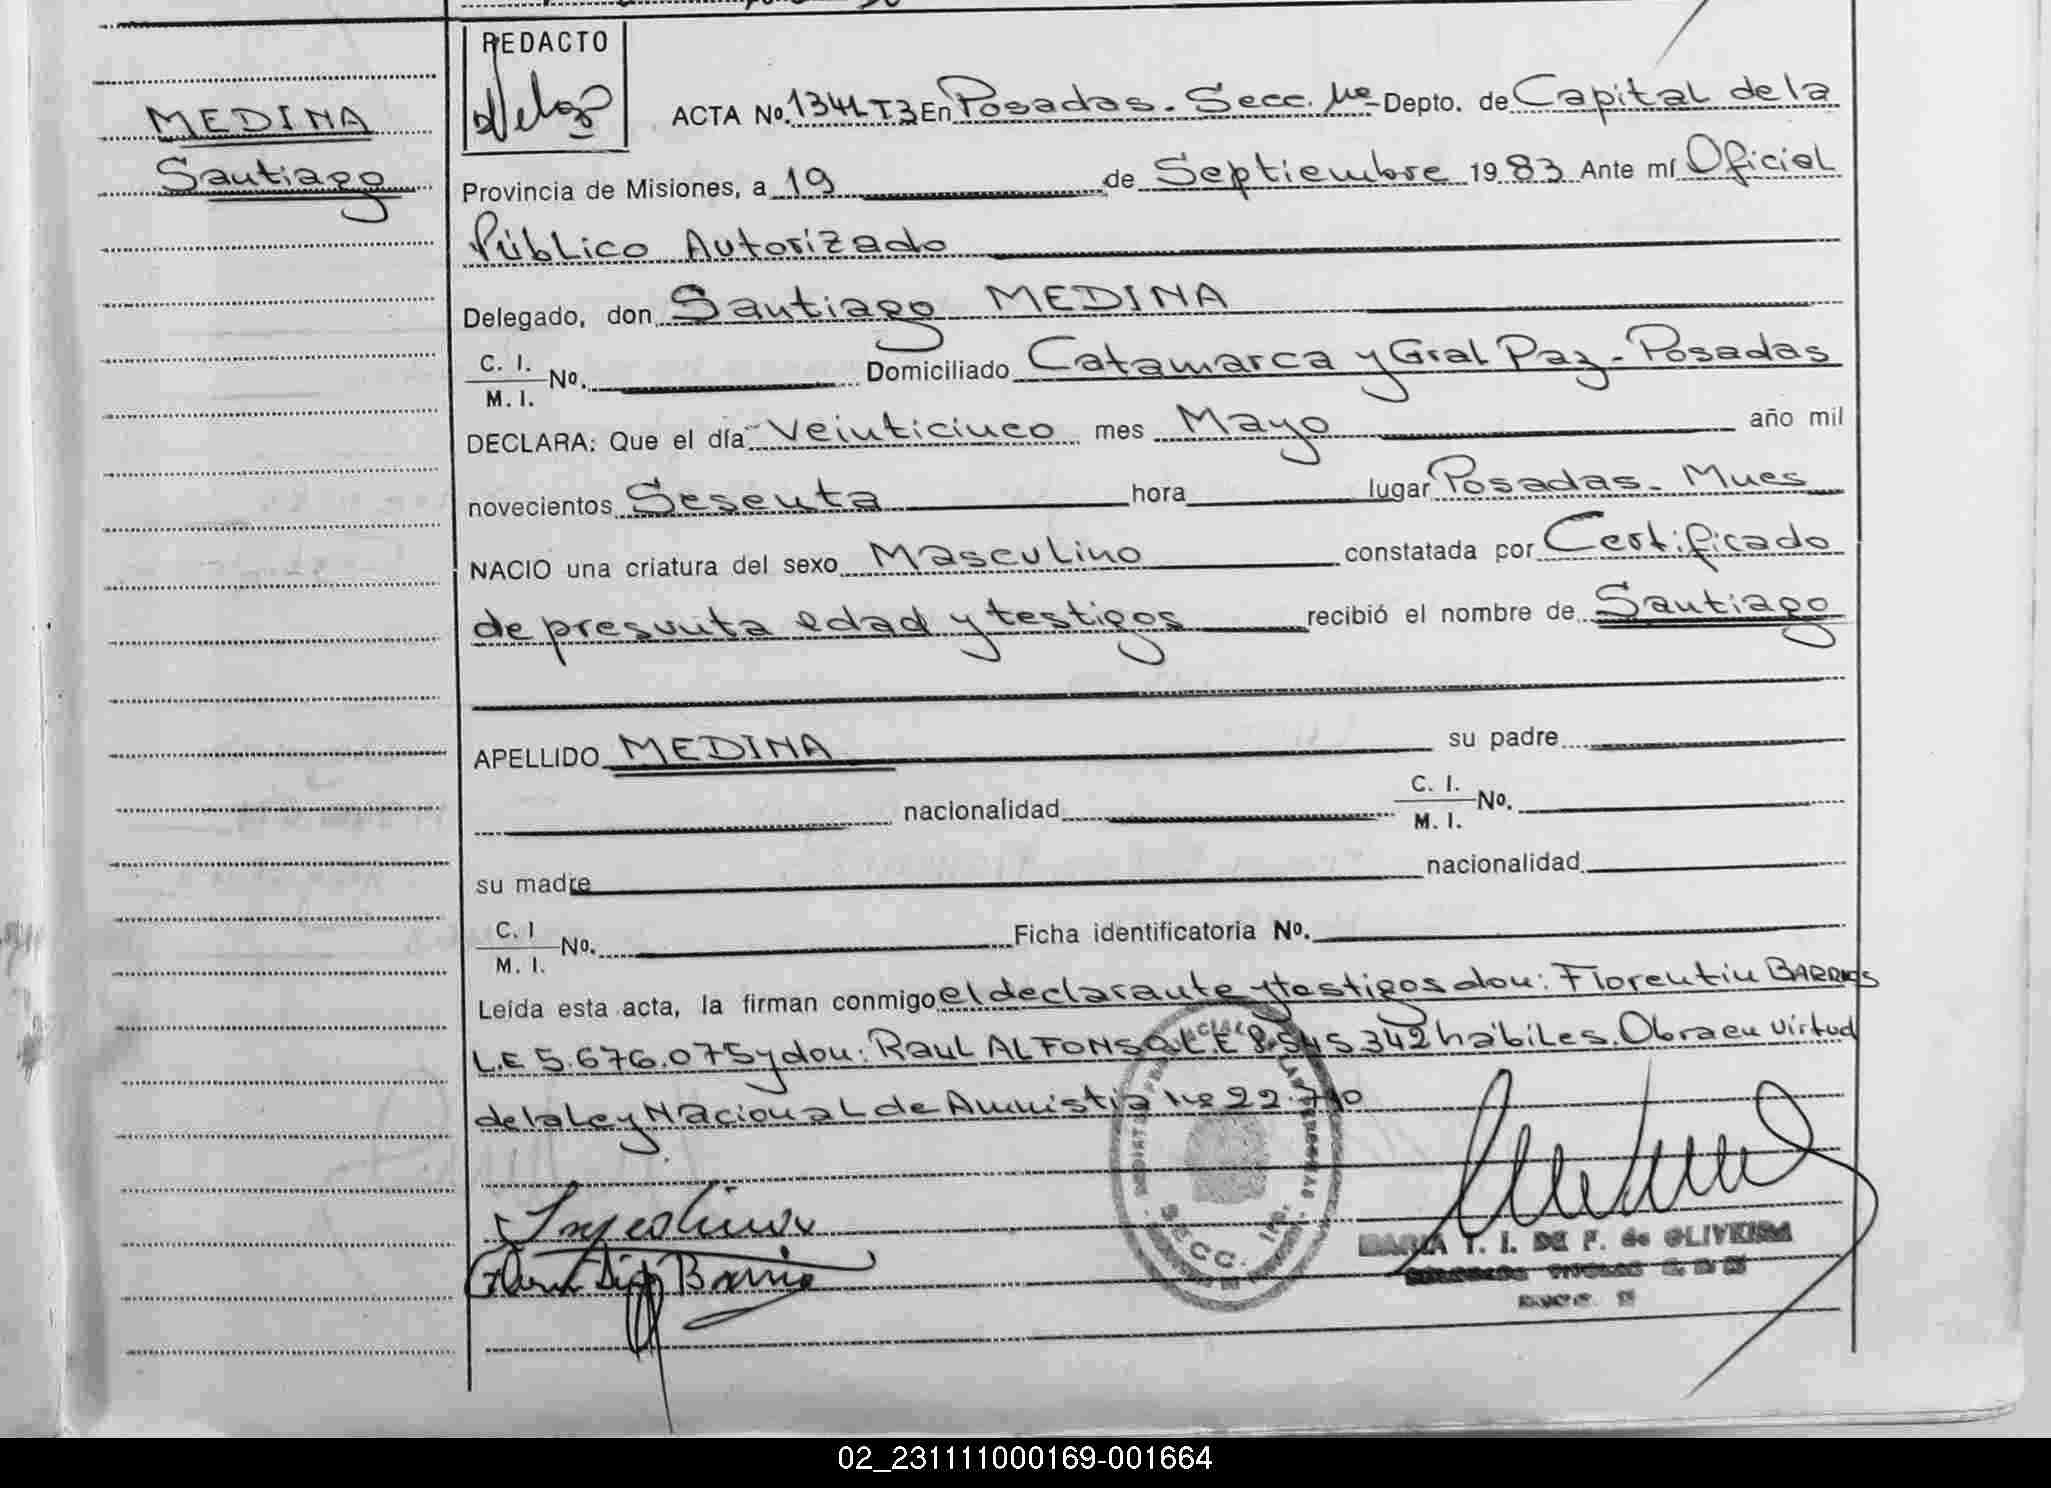 REDACTO
MEDINA
Santiago
ACTA No. 134L T3 En Posadas. Secc. Depto. de Capital de la
Provincia de Misiones, a 19 de Septiembre 1983 Ante mí Oficial
Público Autorizado
Delegado, don Santiago MEDINA
C. I.
M. I. No. Domiciliado Catamarca y Gral Paz - Posadas
DECLARA: Que el día Veinticinco mes Mayo año mil
novecientos Sesenta hora lugar Posadas - Mnes
NACIO una criatura del sexo Masculino constatada por Certificado
de presunta edad y testigos recibió el nombre de Santiago
APELLIDO MEDINA su padre
nacionalidad C. I.
M. I. No.
su madre nacionalidad
C. I
M. I. No. Ficha identificatoria No.
Leída esta acta, la firman conmigo el declarante y testigos don: Florentin BARRIOS
L.E 5.676.075 y don: Raul ALFONSO L.E 8.545.342 hábiles. Obra en virtud
de la Ley Nacional de Amnistía Nº 22.710
SECC.
MARIA T. I. DE F. de OLIVEIRA
02_231111000169-001664